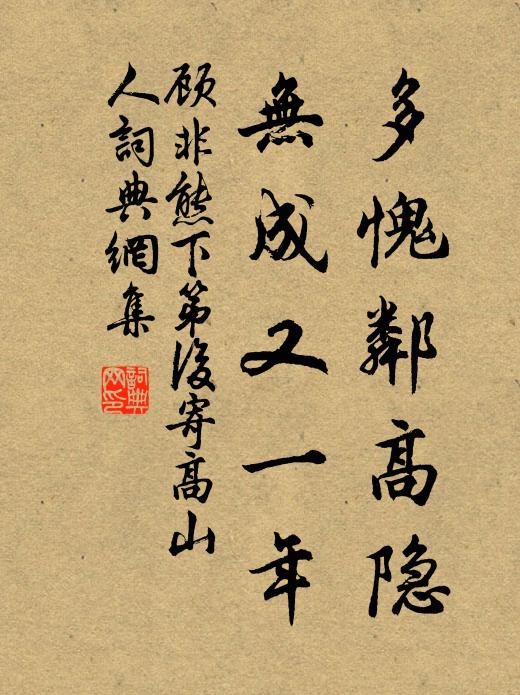 多愧鄰高隐
無成又一年
顾非熊下第後寄高山
人詞典網集
詞典
网印